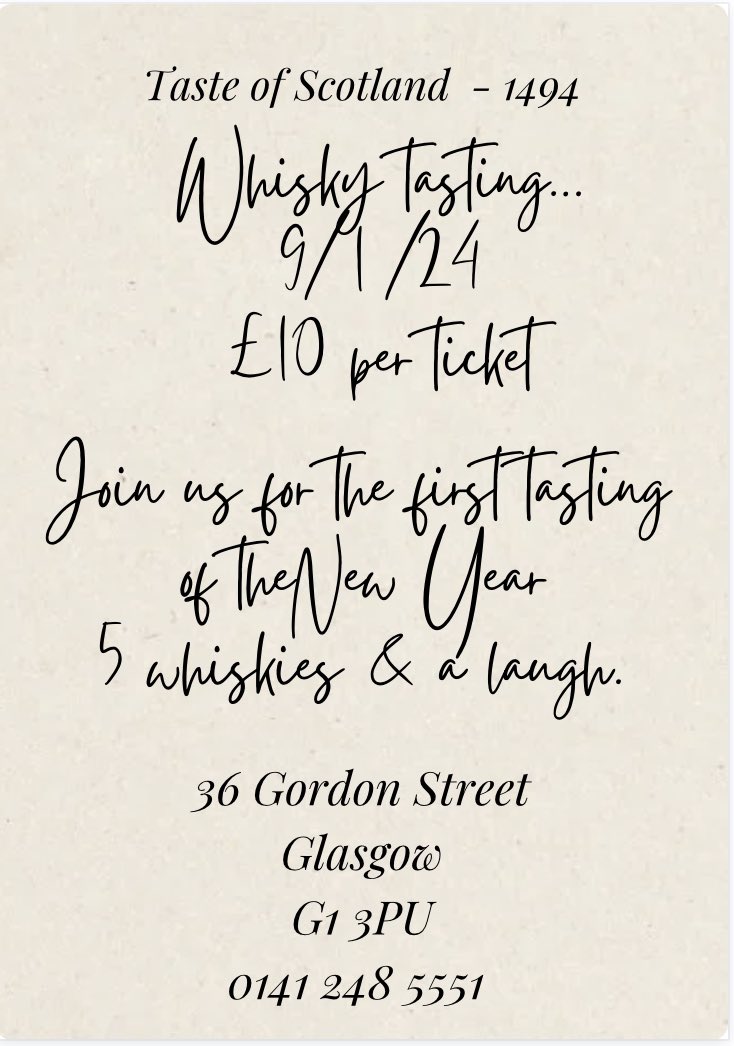 Taste of Scotland - 1494
Whisky tasting...
9/1/24
£10 per ticket
Join us for the first tasting
of the New Year
5 whiskies & a laugh.
36 Gordon Street
Glasgow
G1 3PU
0141 248 5551